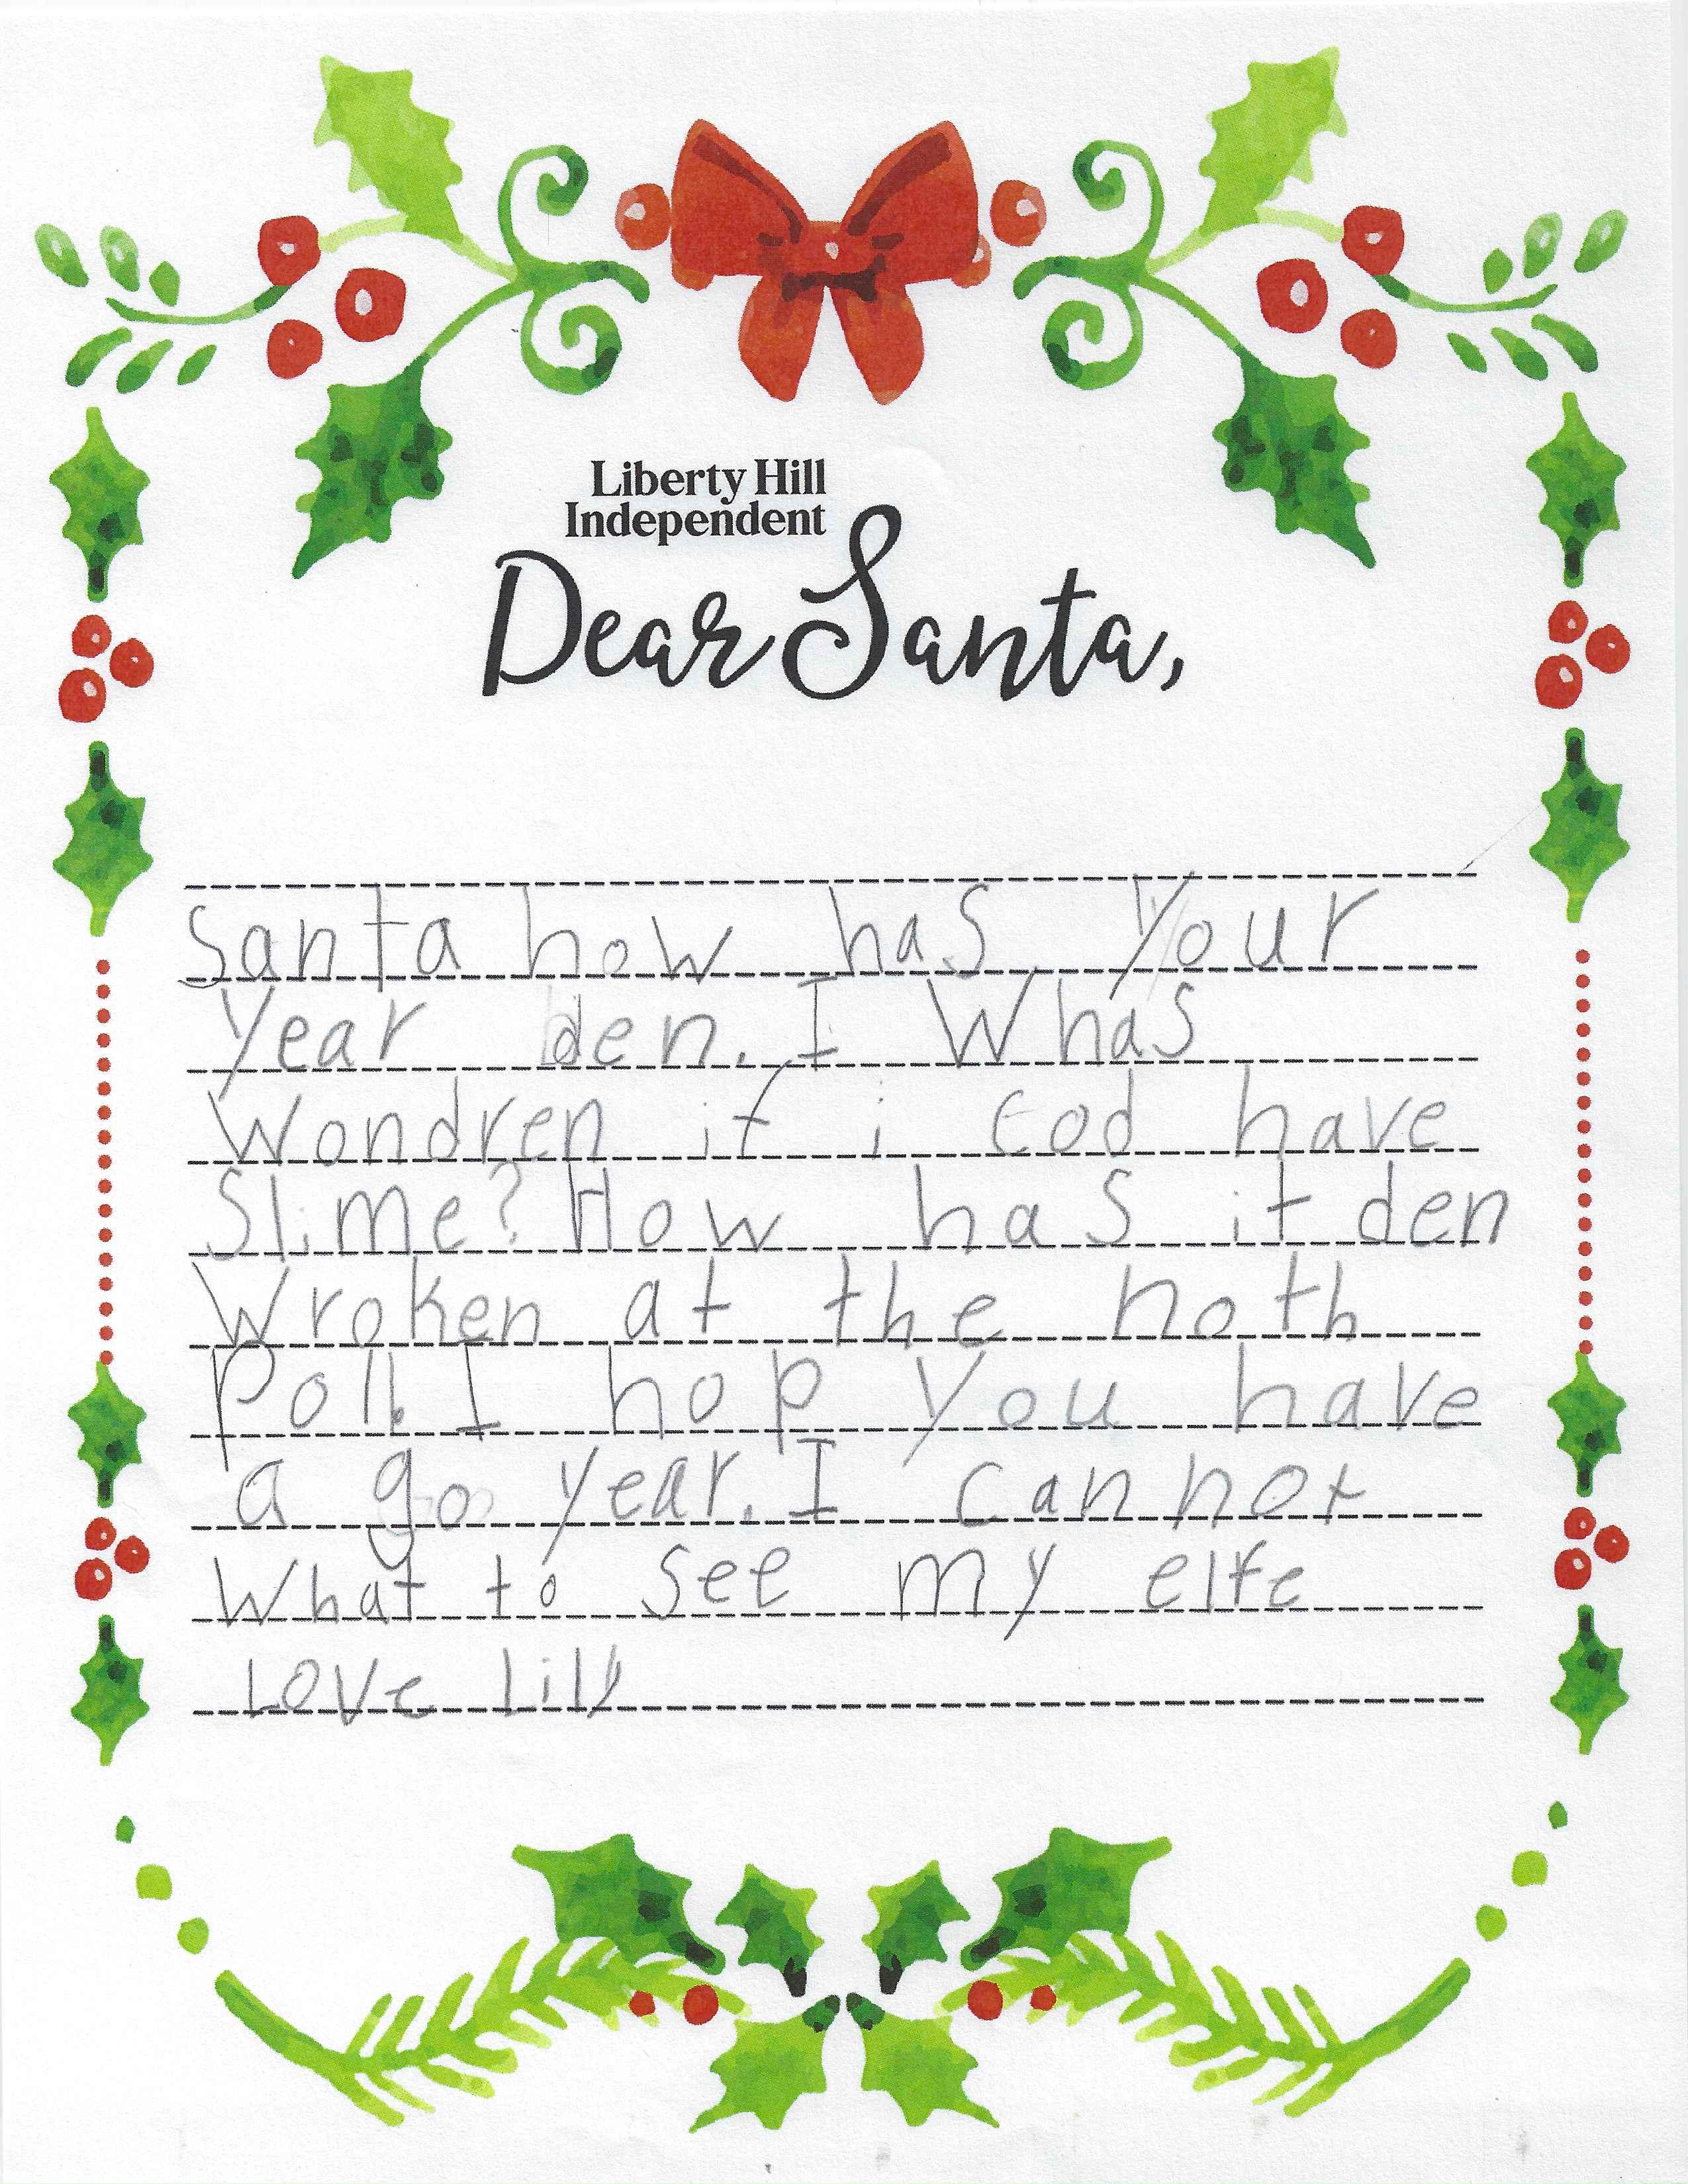 Liberty Hill
Independent
Dear Santa,
Santa how has your
year den. I Whas
Wondren if i cod have
Slime? How has it den
Wroken at the noth
Poll. I hop you have
a go year. I can not
What to see my elfe
Love lily